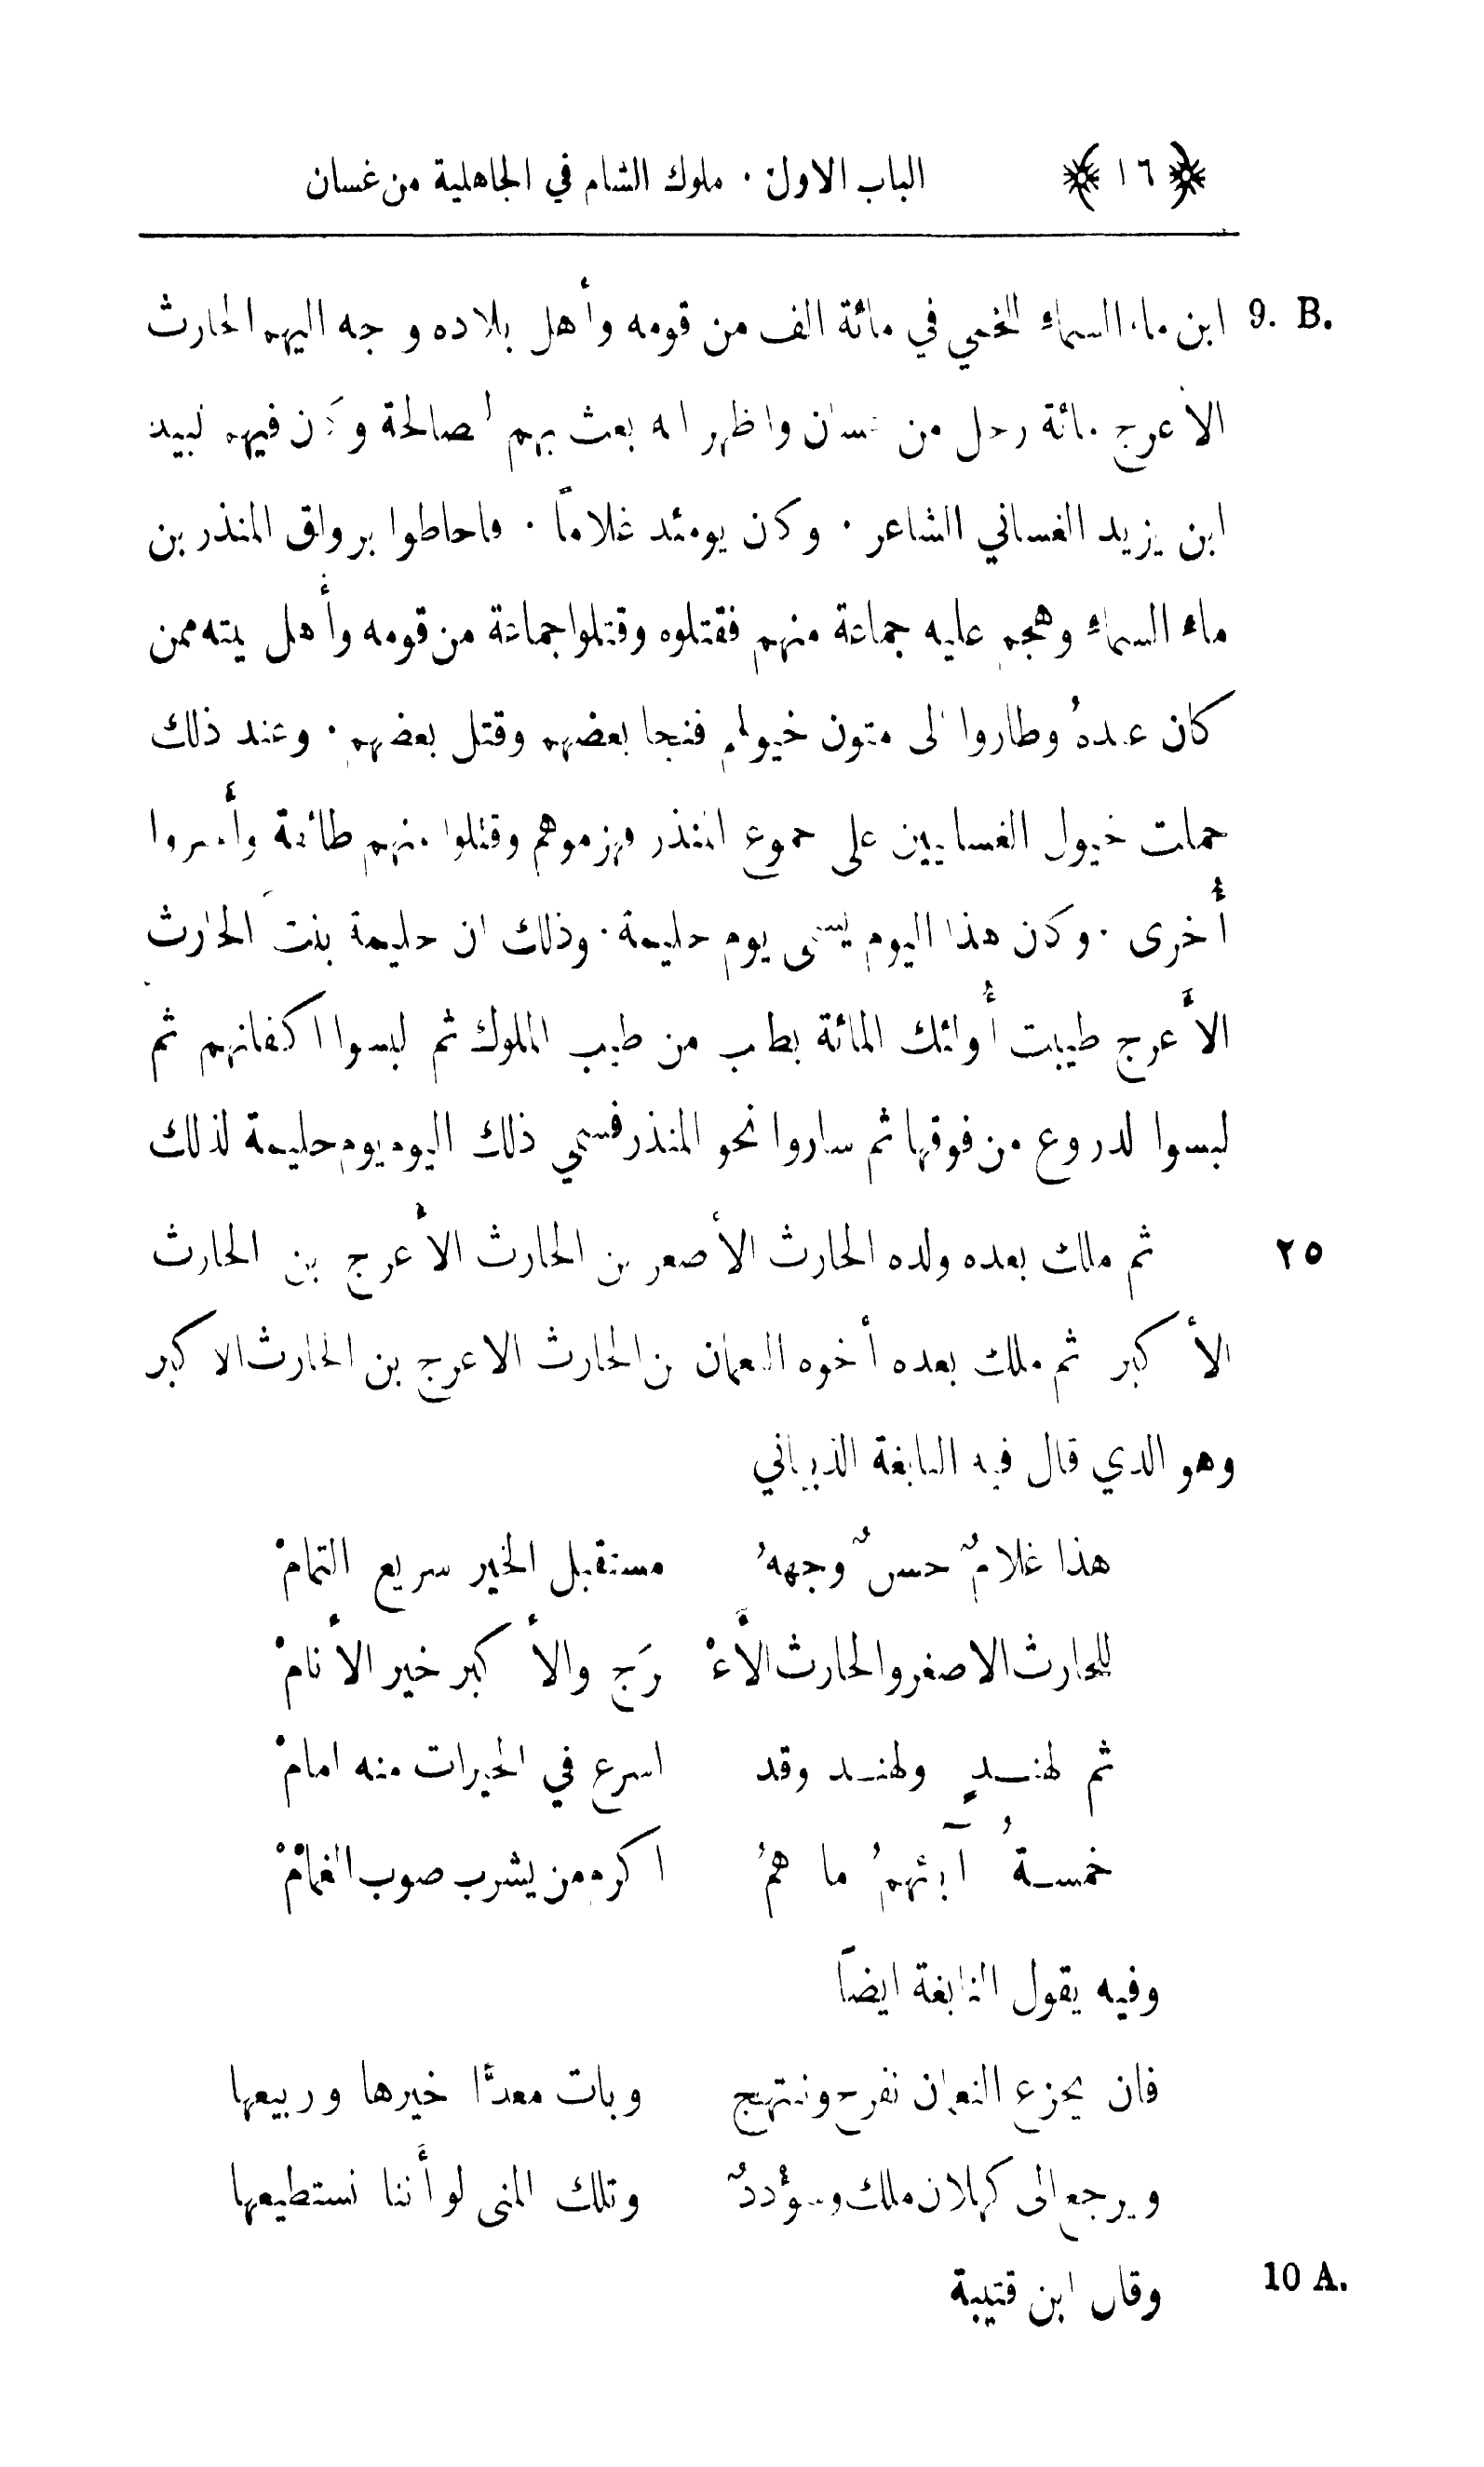 ﴿ ١٦ ﴾ الباب الاول · ملوك الشام في الجاهلية من غسان
9. B. ابن ماء السماء اللخمي في مائة الف من قومه وأهل بلاده و جه اليهم الحارث
الأعرج مائة رجل من غسان واظهر انه بعث بهم لمصالحة وكان فيهم لبيد
ابن يزيد الغساني الشاعر · وكان يومئد غلاماً · فاحاطوا برواق المنذر بن
ماء السماء وهجم عليه جماعة منهم فقتلوه وقتلوا جماعة من قومه وأهل بيته ممن
كان عنده وطاروا الى متون خيولهم فنجا بعضهم وقتل بعضهم · وعند ذلك
حملت خيول الغسانيين على جموع المنذر فهزموهم وقتلوا منهم طائفة وأسروا
أخرى · وكان هذا اليوم يسمى يوم حليمة · وذلك ان حليمة بنت الحارث
الأعرج طيبت أولئك المائة بطيب من طيب الملوك ثم لبسوا اكفانهم ثم
لبسوا الدروع من فوقها ثم ساروا نحو المنذر فسمي ذلك اليوم يوم حليمة لذلك
٢٥ ثم ملك بعده ولده الحارث الأصغر بن الحارث الأعرج بن الحارث
الأكبر ثم ملك بعده أخوه النعمان بن الحارث الاعرج بن الحارث الاكبر
وهو الذي قال فيه النابغة الذبياني
هذا غلامٌ حسنٌ وجههُ مستقبل الخير سريع التمامْ
للحارث الاصغر والحارث الأعْ رَج والأكبر خير الأنامْ
ثم لهنــدٍ ولهنــد وقد اسرع في الخيرات منه امامْ
خمســةُ آبائهمُ ما همُ اكرم من يشرب صوب الغمامْ
وفيه يقول النابغة ايضاً
فان يجزع النعمان نفرح ونبتهج وبات معدًّا خيرها وربيعها
ويرجع الى كهلان ملك وسؤددٌ وتلك المنى لو أننا نستطيعها
10 A. وقال ابن قتيبة